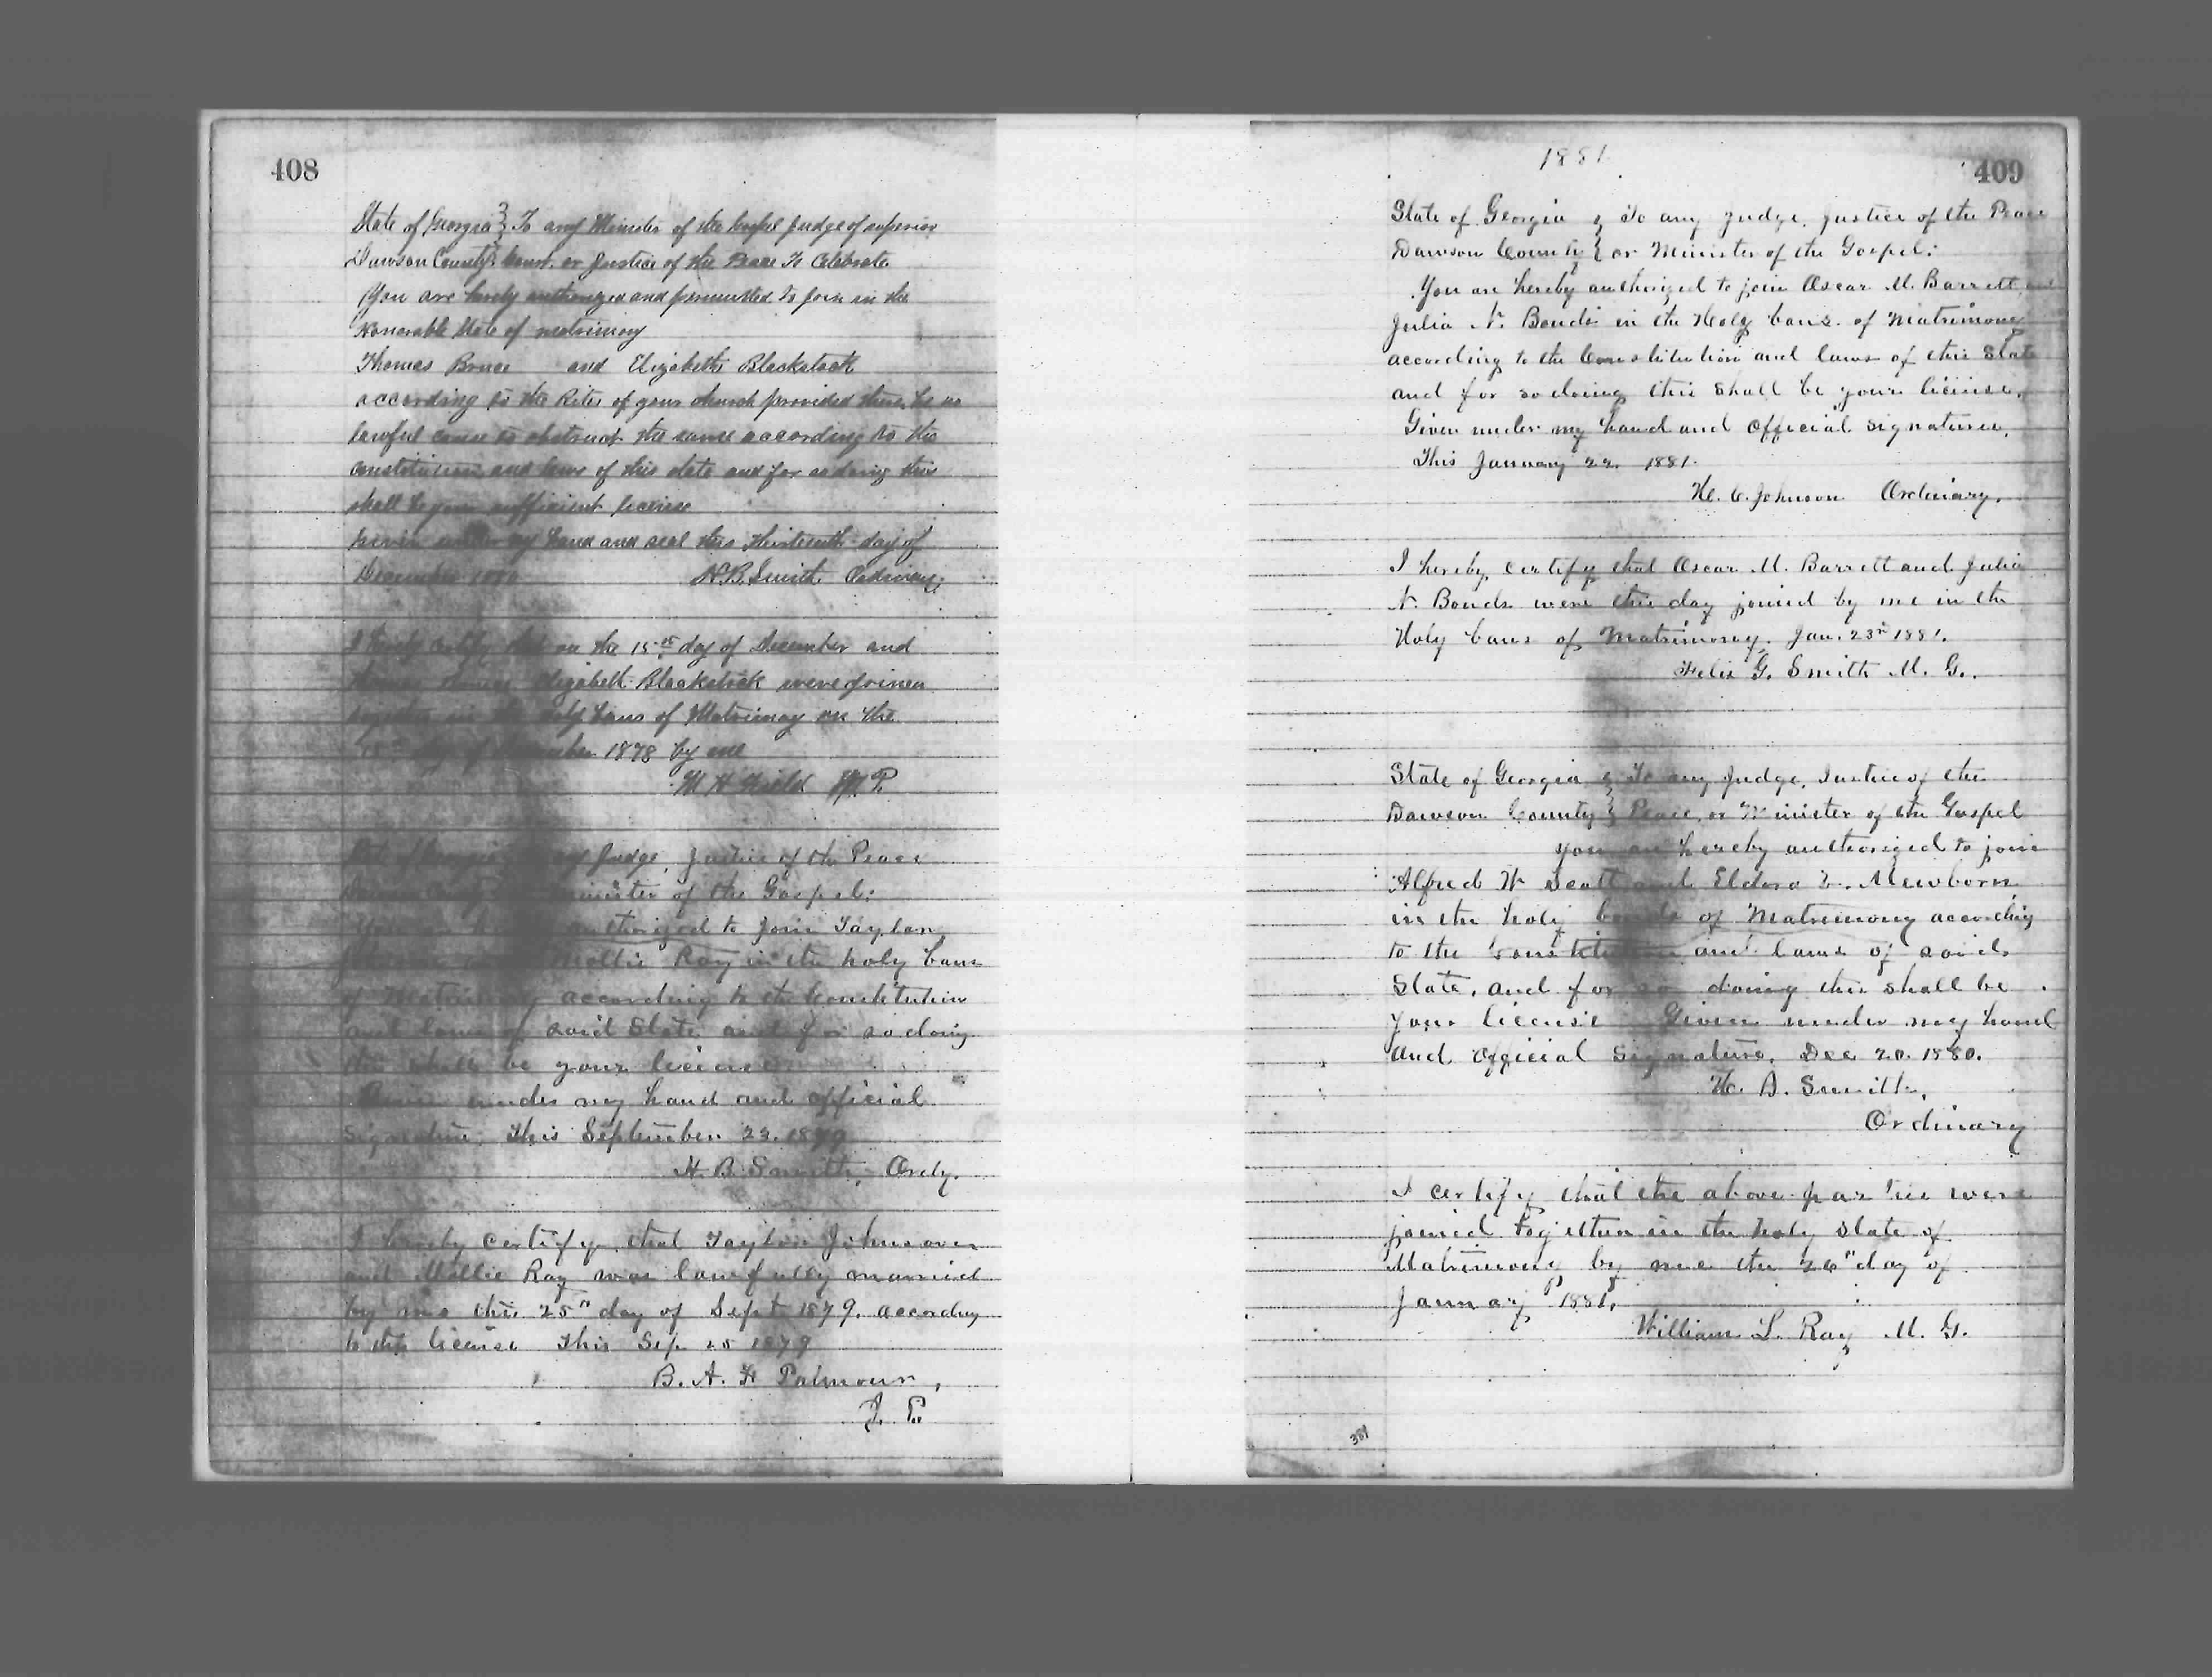 408
State of Georgia } To any Minister of the Gospel Judge of superior
Dawson County } Court or Justice of the Peace To Celebrate
You are hereby authorized and permitted to join in the
Honorable State of matrimony
Thomas Bruce and Elizabeth Blackstock
according to the Rites of your church provided there be no
lawful cause to obstruct the same according to the
constitution and laws of this state and for so doing this
shall be your sufficient license
Given under my hand and seal this thirteenth day of
December H.B. Smith Ordinary
I certify that on the 15th day of December and
Elizabeth Blackstock were joined
together in the holy bans of Matrimony on the
1878 by me
M H
State of Georgia any Judge, Justice of the Peace
Minister of the Gospel:
authorized to join Taylor
Mollie Ray in the holy bans
of Matrimony according to the Constitution
and laws of said State and for so doing
this shall be your license
Given under my hand and official
Signature, this September 23. 1879
H. B. Smith, Ordy.
I hereby certify that Taylor Johnson
and Mollie Ray was lawfully married
by me this 25th day of Sept 1879, according
to this license This Sep 25 1879
B. A. F Palmour,
J. P.
1881
409
State of Georgia } To any Judge, Justice of the Peace
Dawson County } or Minister of the Gospel:
You are hereby authorized to join Oscar M. Barrett and
Julia N. Bonds in the Holy bans of Matrimony
according to the Constitution and laws of this State
and for so doing this shall be your license.
Given under my hand and official signature,
This January 22. 1881.
H. C. Johnson Ordinary.
I hereby certify that Oscar M. Barrett and Julia
N. Bonds were this day joined by me in the
Holy bans of Matrimony. Jan. 23rd 1881.
Felix G. Smith M. G.
State of Georgia } To any Judge, Justice of the
Dawson County } Peace, or Minister of the Gospel
you are hereby authorized to join
Alfred W Scott and Eldora Mewborn
in the holy bonds of Matrimony according
to the Constitution and laws of said
State, and for so doing this shall be
your license Given under my hand
and official Signature, Dec 20. 1880.
H. B. Smith,
Ordinary
I certify that the above parties were
joined together in the holy state of
Matrimony by me the 26" day of
January 1881,
William L. Ray M. G.